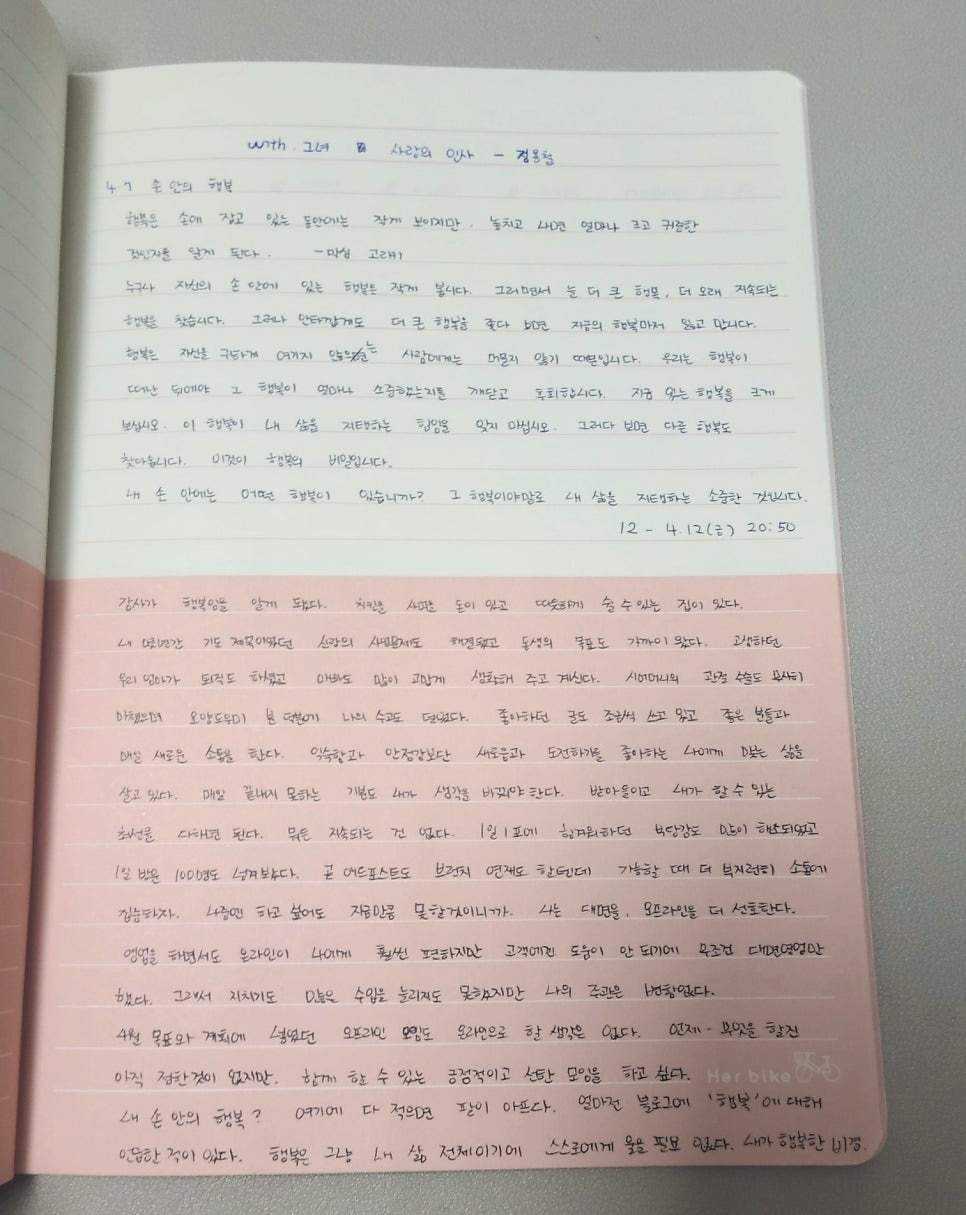 with. 그녀 사랑의 인사 - 정용철
47 손 안의 행복
행복은 손에 잡고 있는 동안에는 작게 보이지만, 놓치고 나면 얼마나 크고 귀중한
것인지를 알게 된다. - 막심 고리키
누구나 자신의 손 안에 있는 행복은 작게 봅니다. 그러면서 늘 더 큰 행복, 더 오래 지속되는
행복을 찾습니다. 그러나 안타깝게도 더 큰 행복을 좇다 보면 지금의 행복마저 잃고 맙니다.
행복은 자신을 귀하게 여기지 않는 사람에게는 머물지 않기 때문입니다. 우리는 행복이
떠난 뒤에야 그 행복이 얼마나 소중했는지를 깨닫고 후회합니다. 지금 있는 행복을 크게
보십시오. 이 행복이 내 삶을 지탱하는 힘임을 잊지 마십시오. 그러다 보면 다른 행복도
찾아옵니다. 이것이 행복의 비밀입니다.
내 손 안에는 어떤 행복이 있습니까? 그 행복이야말로 내 삶을 지탱하는 소중한 것입니다.
12 - 4.12(금) 20:50
감사가 행복임을 알게 됐다. 치킨을 사먹을 돈이 있고 따뜻하게 쉴 수 있는 집이 있다.
내 몇년간 기도 제목이었던 신랑의 사업문제도 해결됐고 동생의 목표도 가까이 왔다. 고생하던
우리 엄마가 퇴직도 하셨고 아빠도 많이 고맙게 생활해 주고 계신다. 시어머니의 관절 수술도 무사히
마쳤으며 요양도우미 분 덕분에 나의 수고도 덜었다. 좋아하던 글도 조금씩 쓰고 있고 좋은 분들과
매일 새로운 소통을 한다. 익숙함과 안정감보단 새로움과 도전하기를 좋아하는 나에게 맞는 삶을
살고 있다. 매일 끝내지 못하는 기분도 내가 생각을 바꿔야 한다. 받아들이고 내가 할 수 있는
최선을 다하면 된다. 뭐든 지속되는 건 없다. 1일 1포에 힘겨워하던 부담감도 많이 해소되었고
1일 방문 100명도 넘겨봤다. 곧 애드포스트도 브런치 연재도 할텐데 가능할 때 더 부지런히 소통에
집중하자. 나중엔 하고 싶어도 지금만큼 못할것이니까. 나는 대면을, 오프라인을 더 선호한다.
영업을 하면서도 온라인이 나에게 훨씬 편하지만 고객에겐 도움이 안 되기에 무조건 대면영업만
했다. 그래서 지치기도 많은 수입을 늘리지도 못했지만 나의 주관은 변함없다.
4월 목표와 계획에 넣었던 오프라인 모임도 온라인으로 할 생각은 없다. 언제- 무엇을 할진
아직 정한것이 없지만. 함께 할 수 있는 긍정적이고 선한 모임을 하고 싶다.
Her bike
내 손 안의 행복? 여기에 다 적으면 팔이 아프다. 얼마전 블로그에 '행복'에 대해
언급한 적이 있다. 행복은 그냥 내 삶 전체이기에 스스로에게 물을 필요 없다. 내가 행복한 비결.